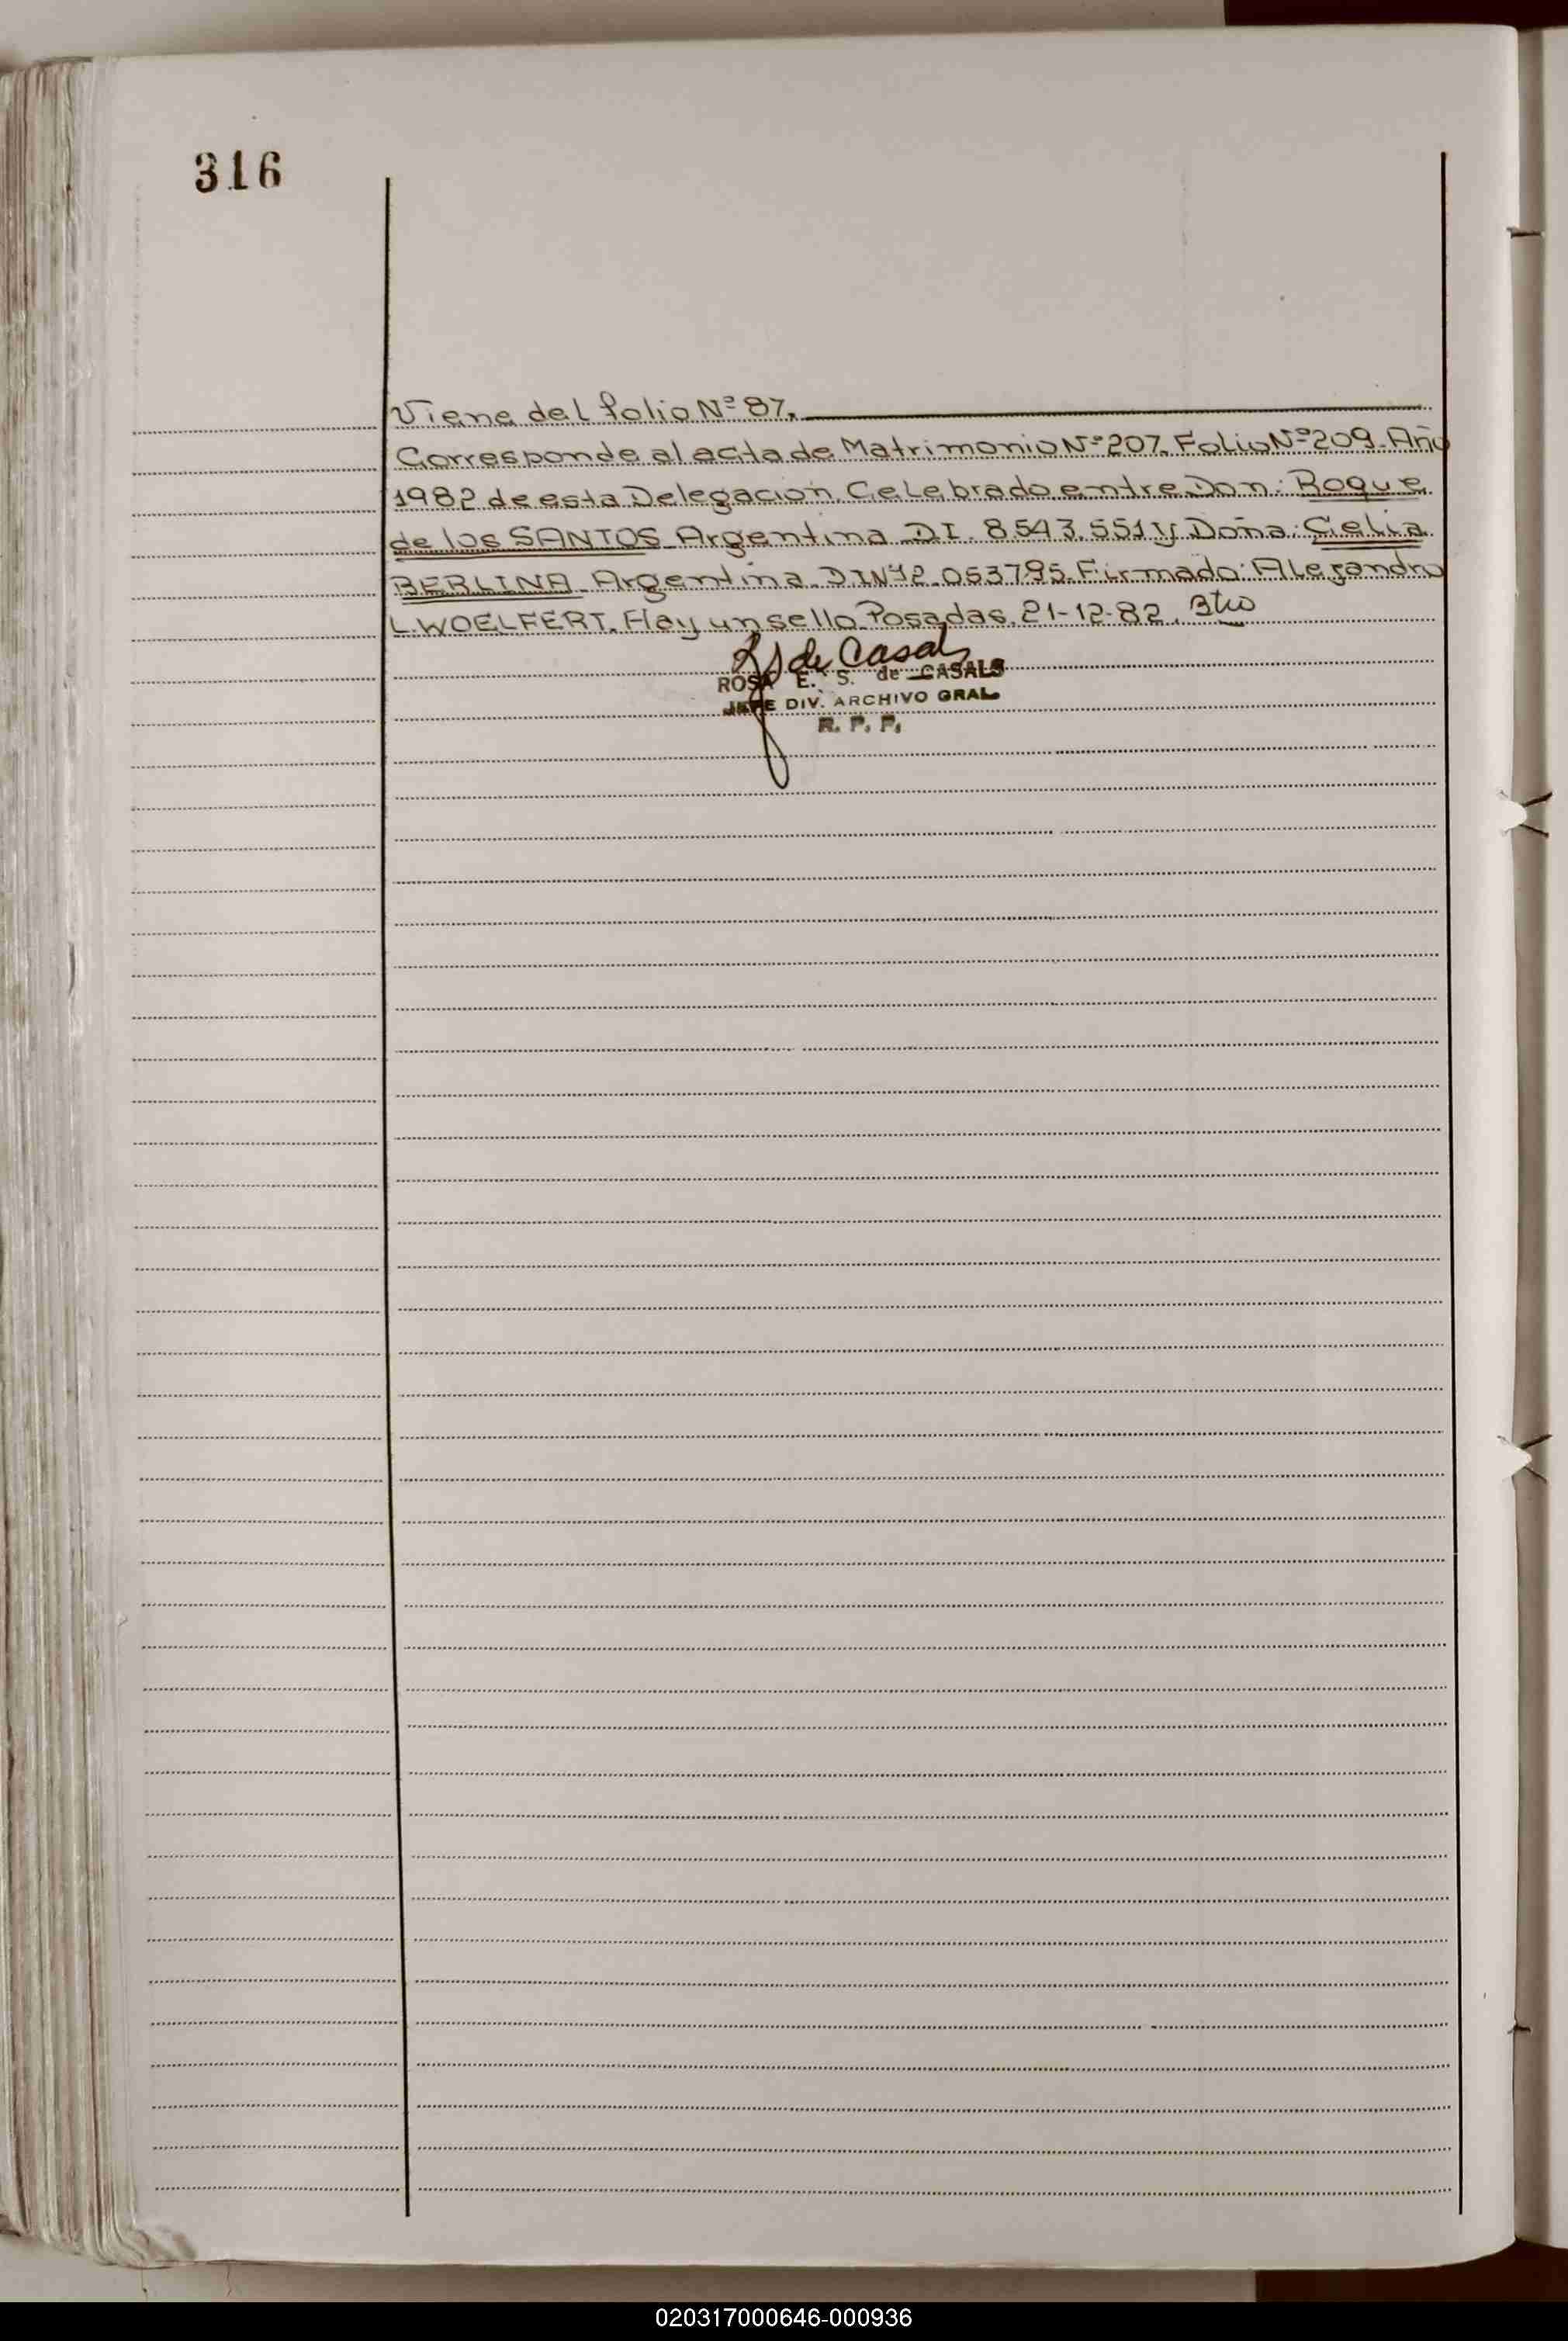 316
Viene del folio Nº 87.
Corresponde al acta de Matrimonio Nº 207. Folio Nº 209. Año
1982 de esta Delegación. Celebrado entre Don: Roque
de los SANTOS Argentina DI. 8.543.551 y Doña: Celia
BERLINA Argentina DI Nº 12.053795. Firmado: Alejandro
L. WOELFERT. Hay un sello. Posadas, 21-12-82.
de Casals
ROSA E. S. de CASALS
JEFE DIV. ARCHIVO GRAL
R. P. P.
020317000646-000936